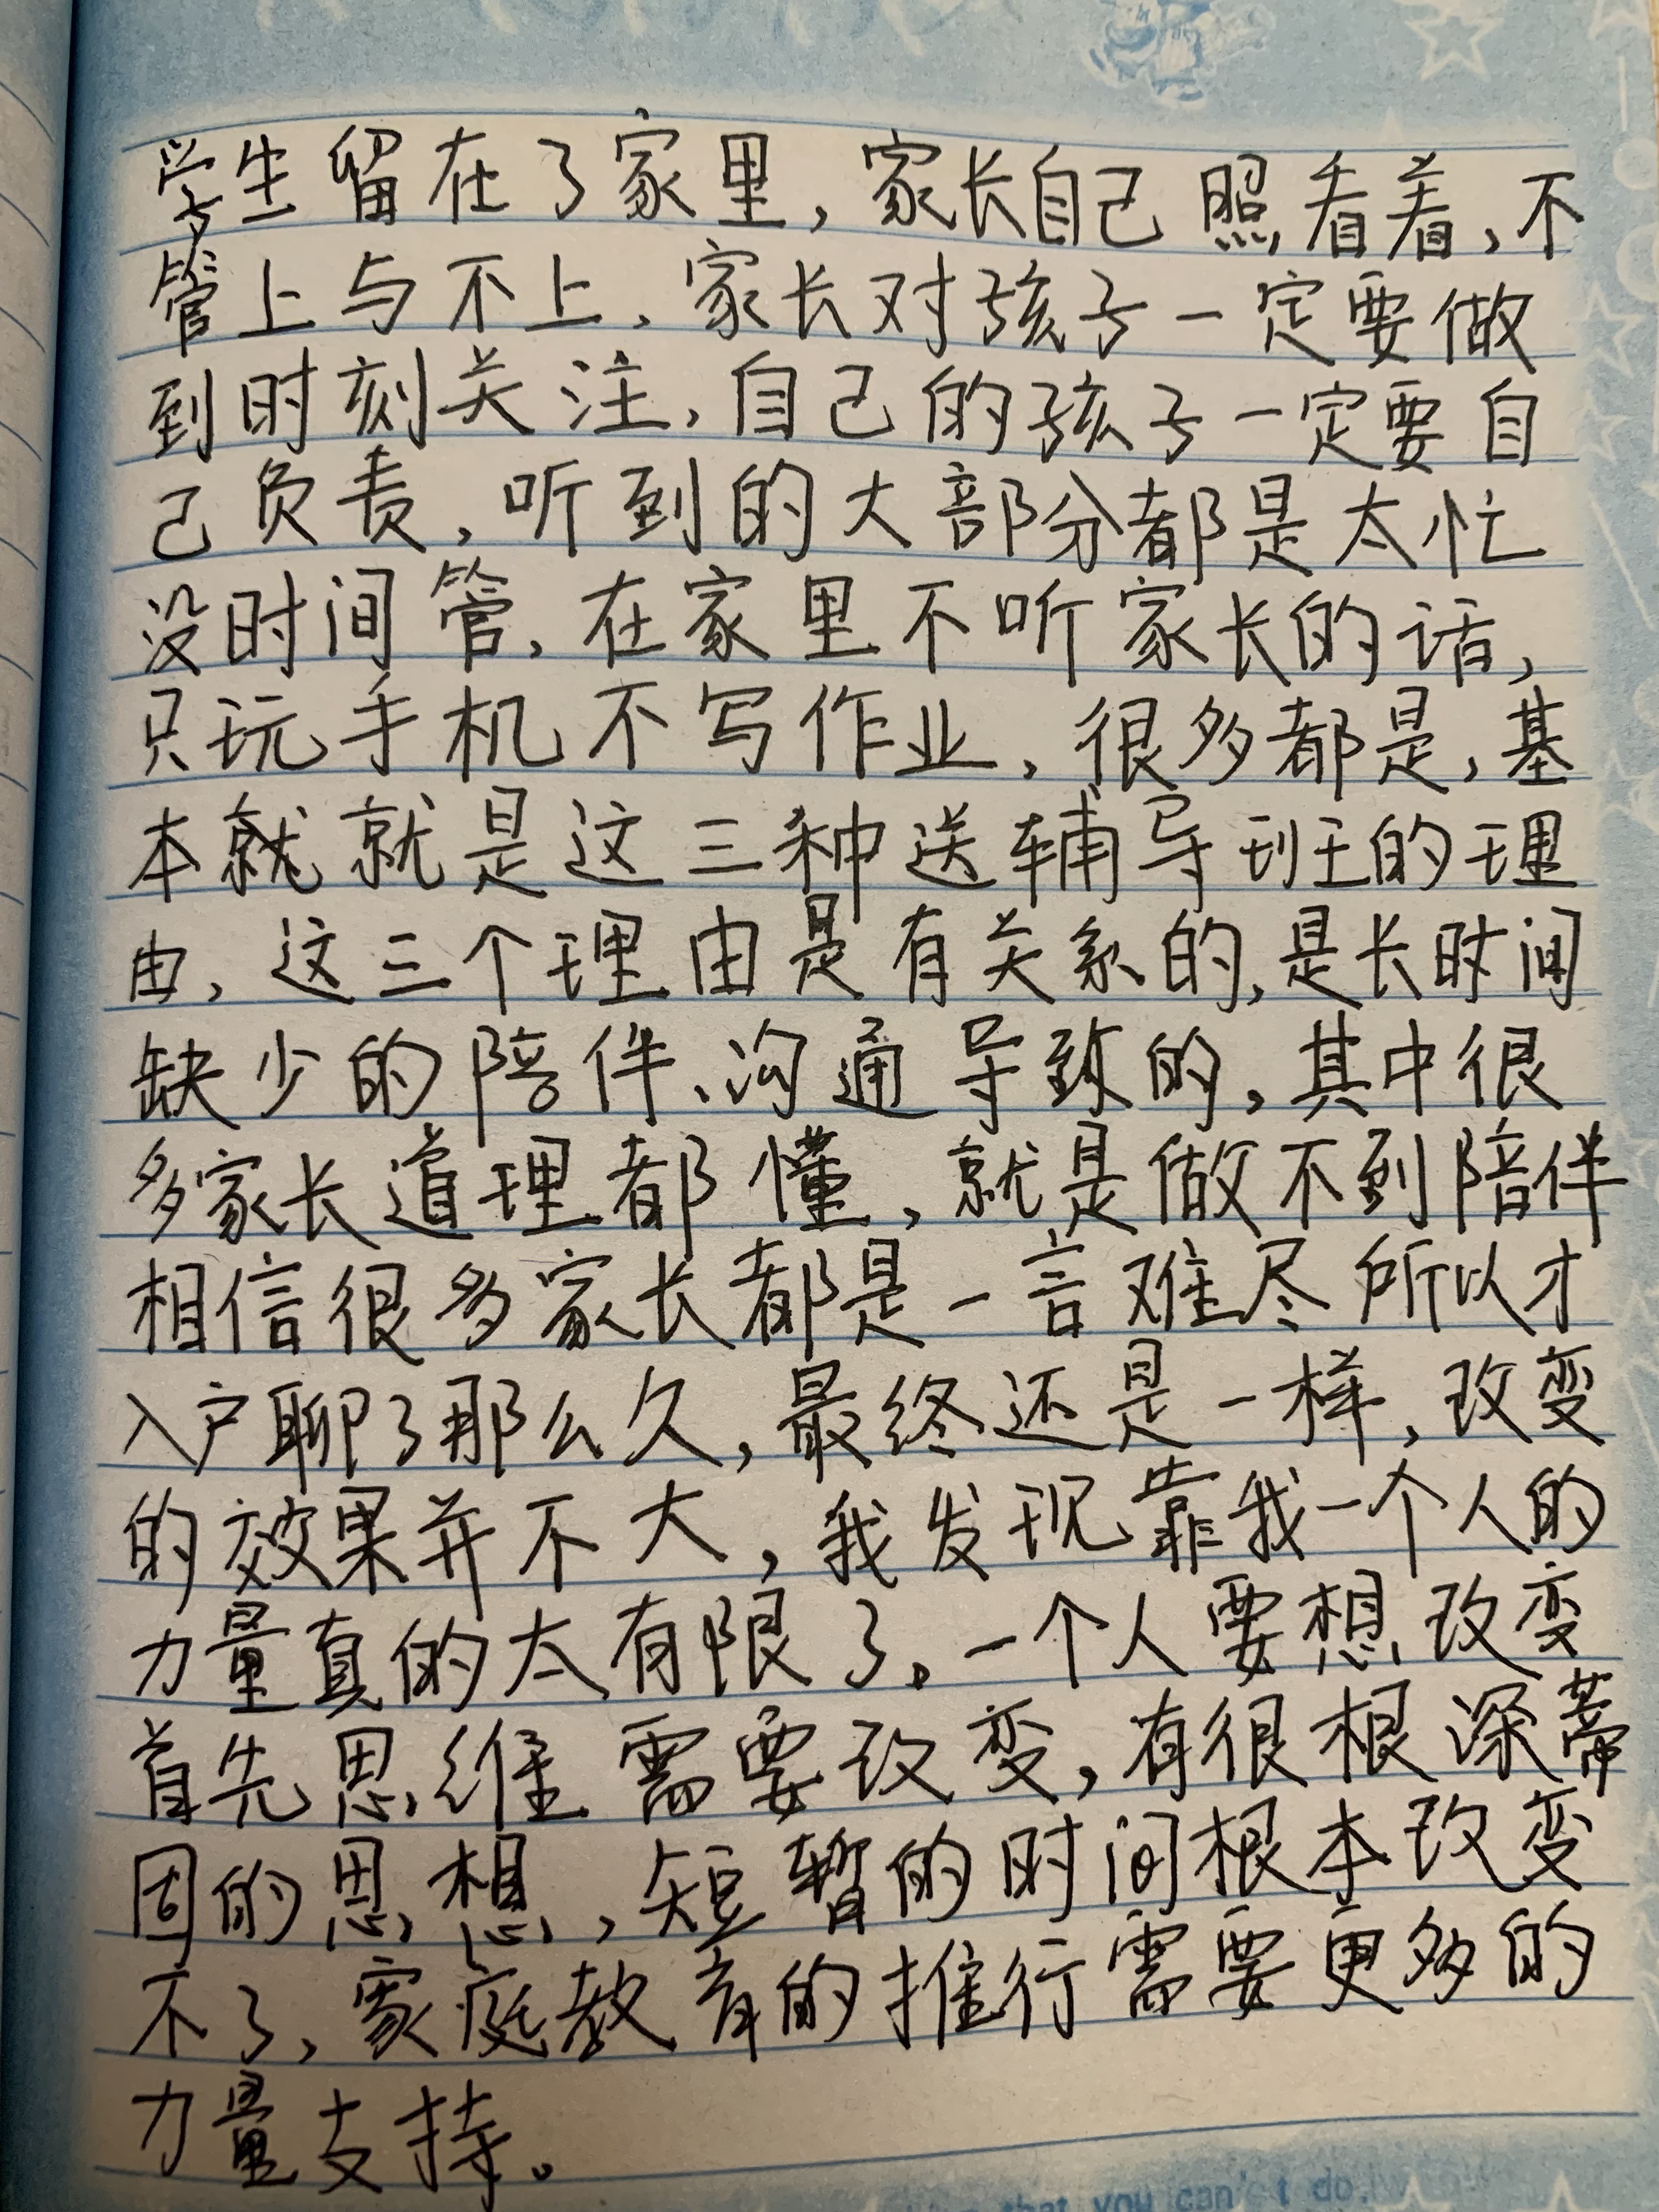 学生留在了家里，家长自己照看着，不
管上与不上，家长对孩子一定要做
到时刻关注，自己的孩子一定要自
己负责，听到的大部分都是太忙
没时间管，在家里不听家长的话，
只玩手机不写作业，很多都是，基
本就就是这三种送辅导班的理
由，这三个理由是有关系的，是长时间
缺少的陪伴、沟通导致的，其中很
多家长道理都懂，就是做不到陪伴
相信很多家长都是一言难尽所以才
入户聊了那么久，最终还是一样，改变
的效果并不大，我发现靠我一个人的
力量真的太有限了。一个人要想改变
首先思维需要改变，有很根深蒂
固的思想，短暂的时间根本改变
不了，家庭教育的推行需要更多的
力量支持。
that you can't do.